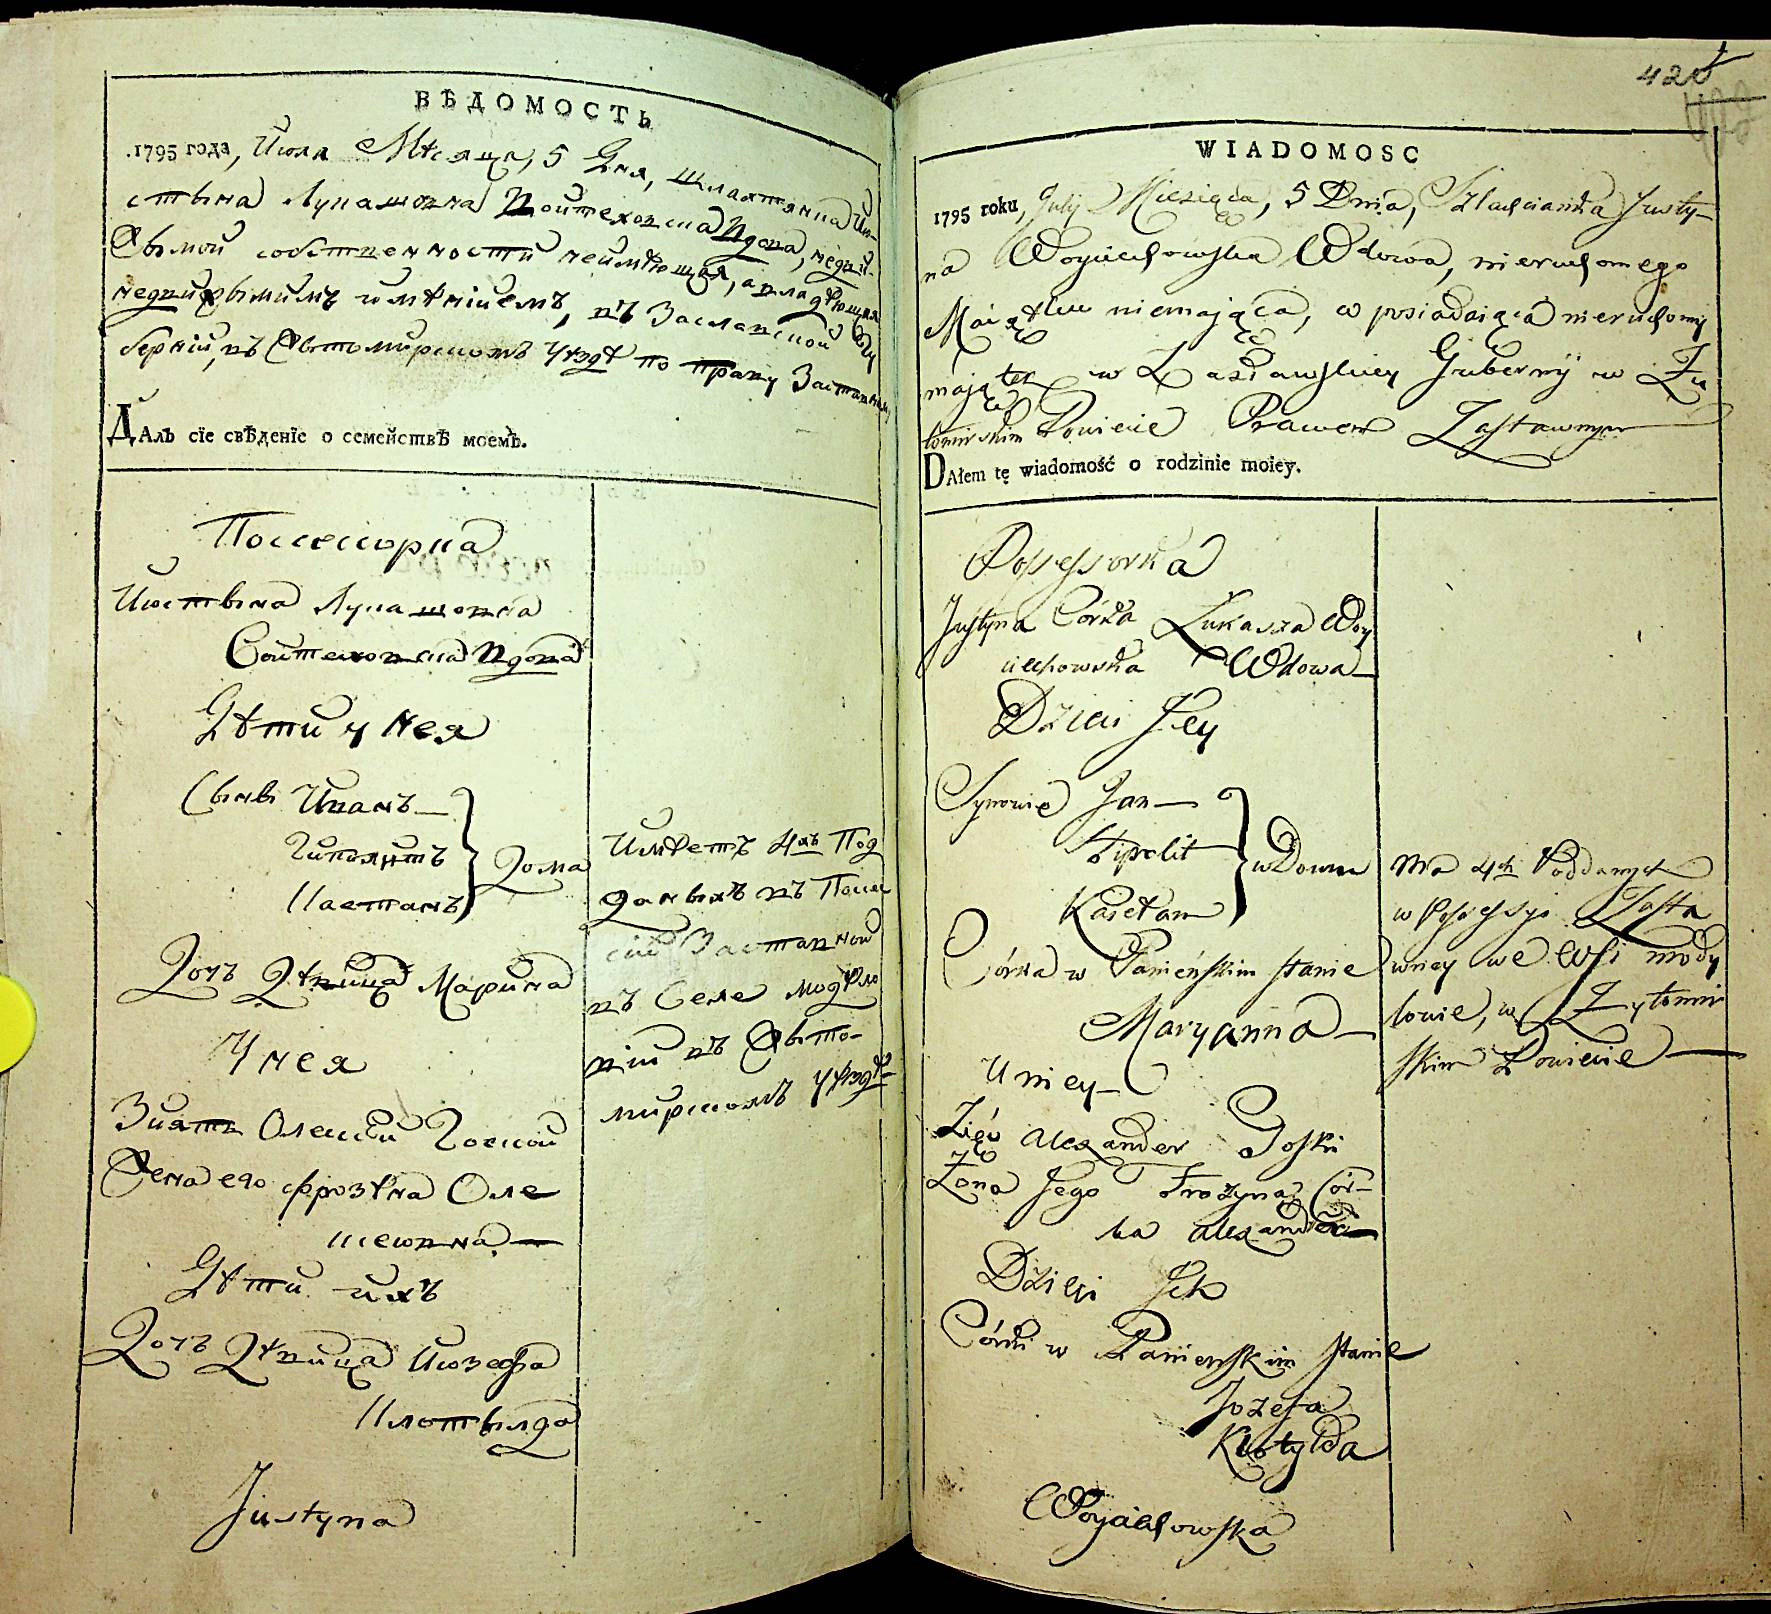 ВѢДОМОСТЬ
1795 года, Июля Мѣсяца, 5 Дня, шляхтянка Ию-
стына Лукашовна Войтеховска вдова, недви-
жымой собственности неимѣющая, а владѣющая
недвижымимъ имѣніиемъ, въ Заславской Гу
берніи, въ Жытомирскомъ уѣздѣ по праву Заставному
Далъ сїе свѣденїе о семействѣ моемъ.
Поссесорка
Июстына Лукашовна
Войтеховска вдова
Дѣти у нея
Сынъ Иванъ
Гиполитъ
Каетанъ
Дома
Дочъ Дѣвица Марина
У нея
Зиять Олексѣй Гоской
Жена его Фрозѣна Оле
ксеювна
Дѣти ихъ
Дочъ Дѣвица Июзефа
Клотылда
Justyna
Имѣетъ 4хъ Под
даныхъ въ Поссе
сіи Заставной
въ Селе модѣло
віи въ Жыто-
мирскомъ уѣздѣ
420
WIADOMOSC
1795 roku, July Miesiąca, 5 Dnia, Szlachcianka Justy-
na Woyciechowska Wdowa, nieruchomego
Maiątku niemająca, w posiadaiąca nieruchomy
majątek w Zasławskiey Guberny w Zy
tomirskim Powiecie Prawem Zastawnym
Dałem tę wiadomość o rodzinie moiey.
Possessorka
Justyna Córka Łukasza Woy
ciechowska Wdowa
Dzieci Jey
Synowie Jan
Hipolit
Kaietan
w Domu
Córka w Panieńskim stanie
Maryanna
U niey
Zięć Alexander Goski
Żona Jego Frozyna Cór-
ka Alexandra
Dzieci Ich
Córki w Panienskim stanie
Jozefa
Klotylda
Woyciechowska
Ma 4ch Poddanych
w Possessyi Zasta
wney we Wsi mody
lowie, w Zytomir
skim Powiecie